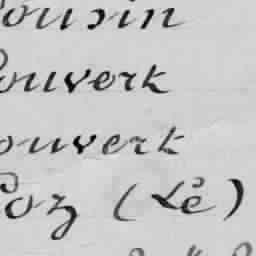 Cousin
Couverk
Couverk
Coz (Le)